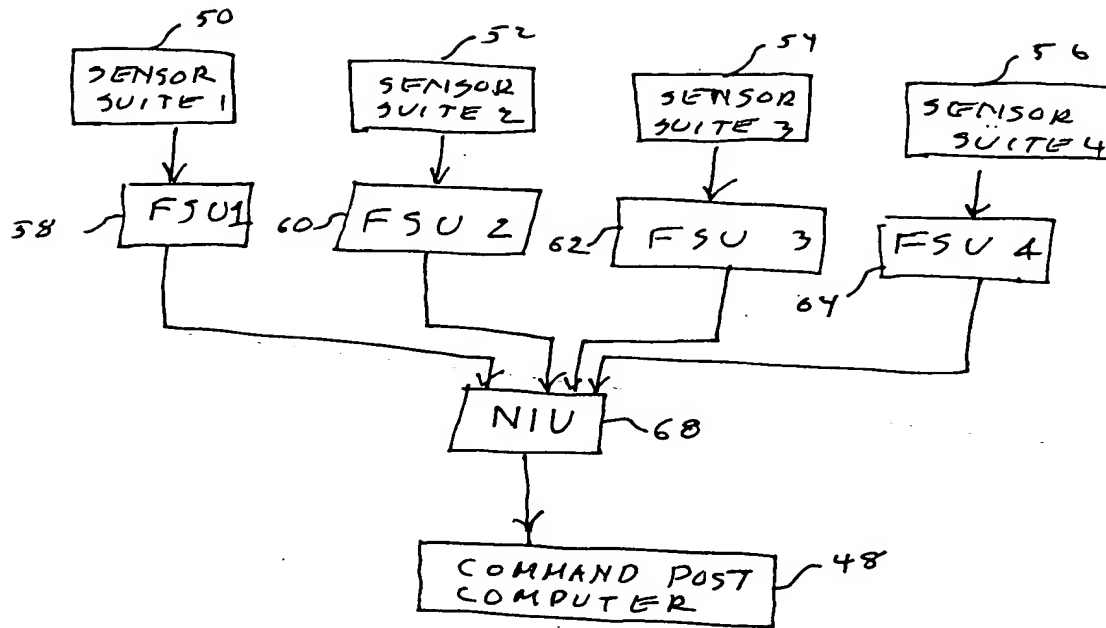 50
52
54
56
SENSOR
SUITE 1
SENSOR
SUITE 2
SENSOR
SUITE 3
SENSOR
SUITE 4
58
FSU1
60
FSU 2
62
FSU 3
64
FSU 4
NIU
68
COMMAND POST
COMPUTER
48